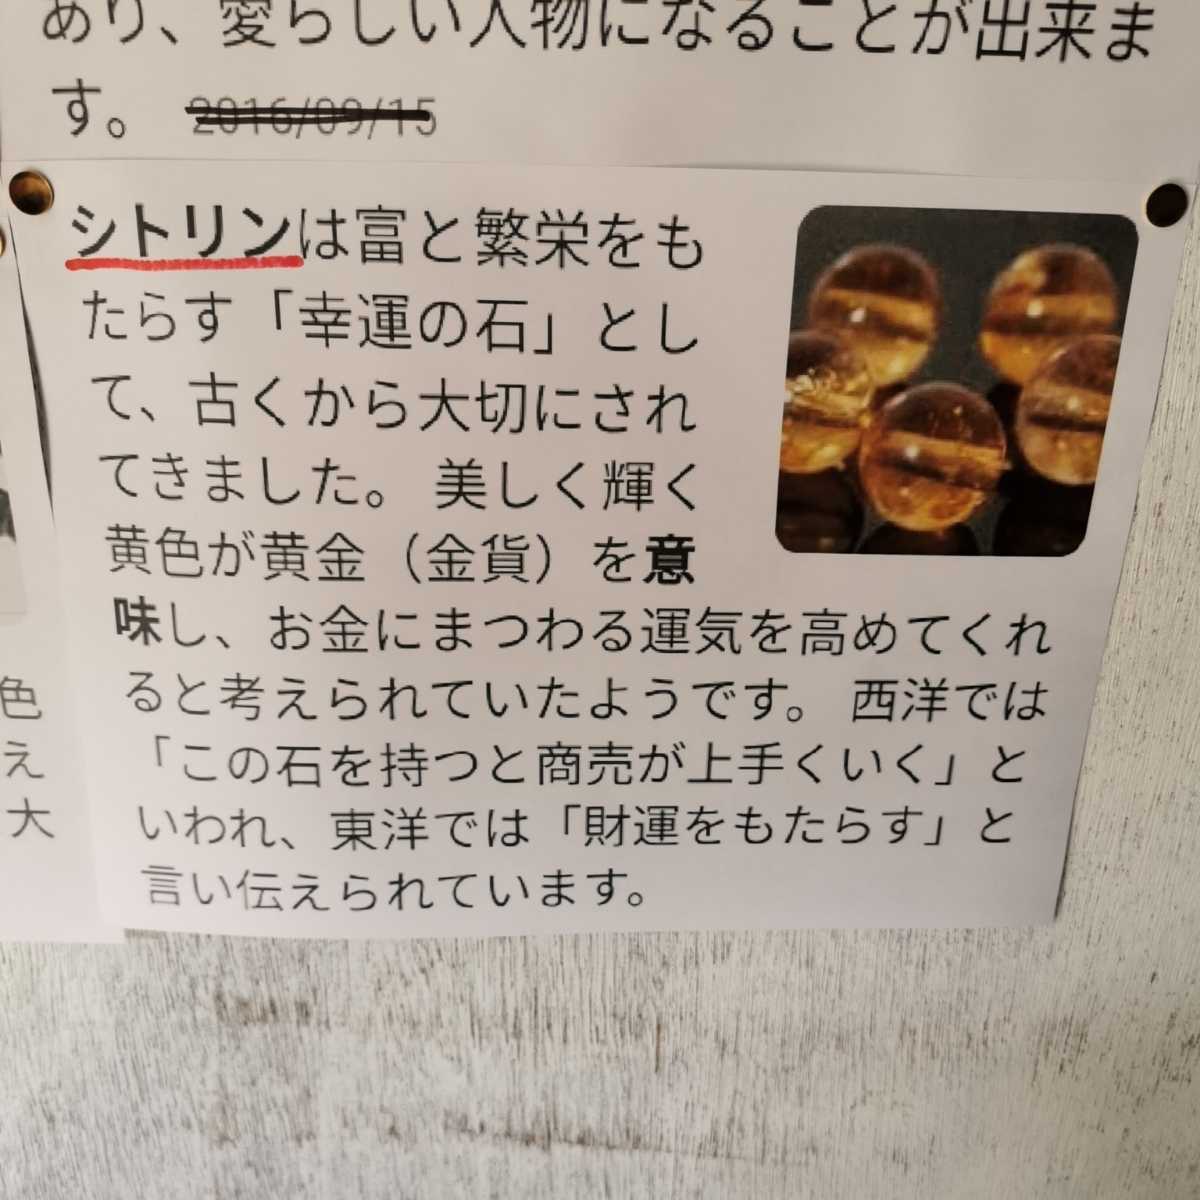 あり、愛らしい人物になることが出来ま
す。 2016/09/15
シトリンは富と繁栄をも
たらす「幸運の石」とし
て、古くから大切にされ
てきました。 美しく輝く
黄色が黄金（金貨）を意
味し、お金にまつわる運気を高めてくれ
ると考えられていたようです。 西洋では
「この石を持つと商売が上手くいく」と
いわれ、東洋では「財運をもたらす」と
言い伝えられています。
色
え
大